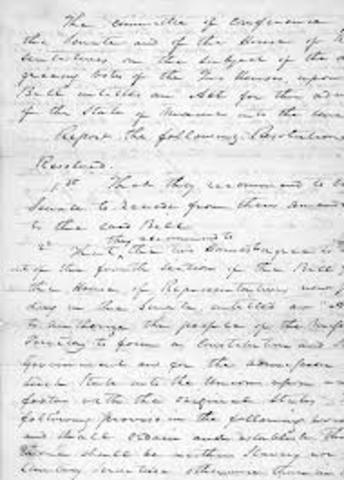 The committee of conference
the Senate and of the House of
sentatives on the subject of the
greeing votes of the Two Houses, upon
Bill entitled an Act for the ad
of the State of
Report the following Resolution
Resolved.
1st That they recommend to
Senate to recede from their amend
to the said Bill
they recommend to
2d That, the two Houses agree to
out of the fourth section of the Bill
the House of Representatives now
day in the Senate, entitled an "A
to authorize the people of the
Territory to form a Constitution and
Government and for the admission
such State into the Union upon an
footing with the original States
following proviso in the following wor
and shall ordain and establish Tha
There shall be neither Slavery nor
otherwise than in